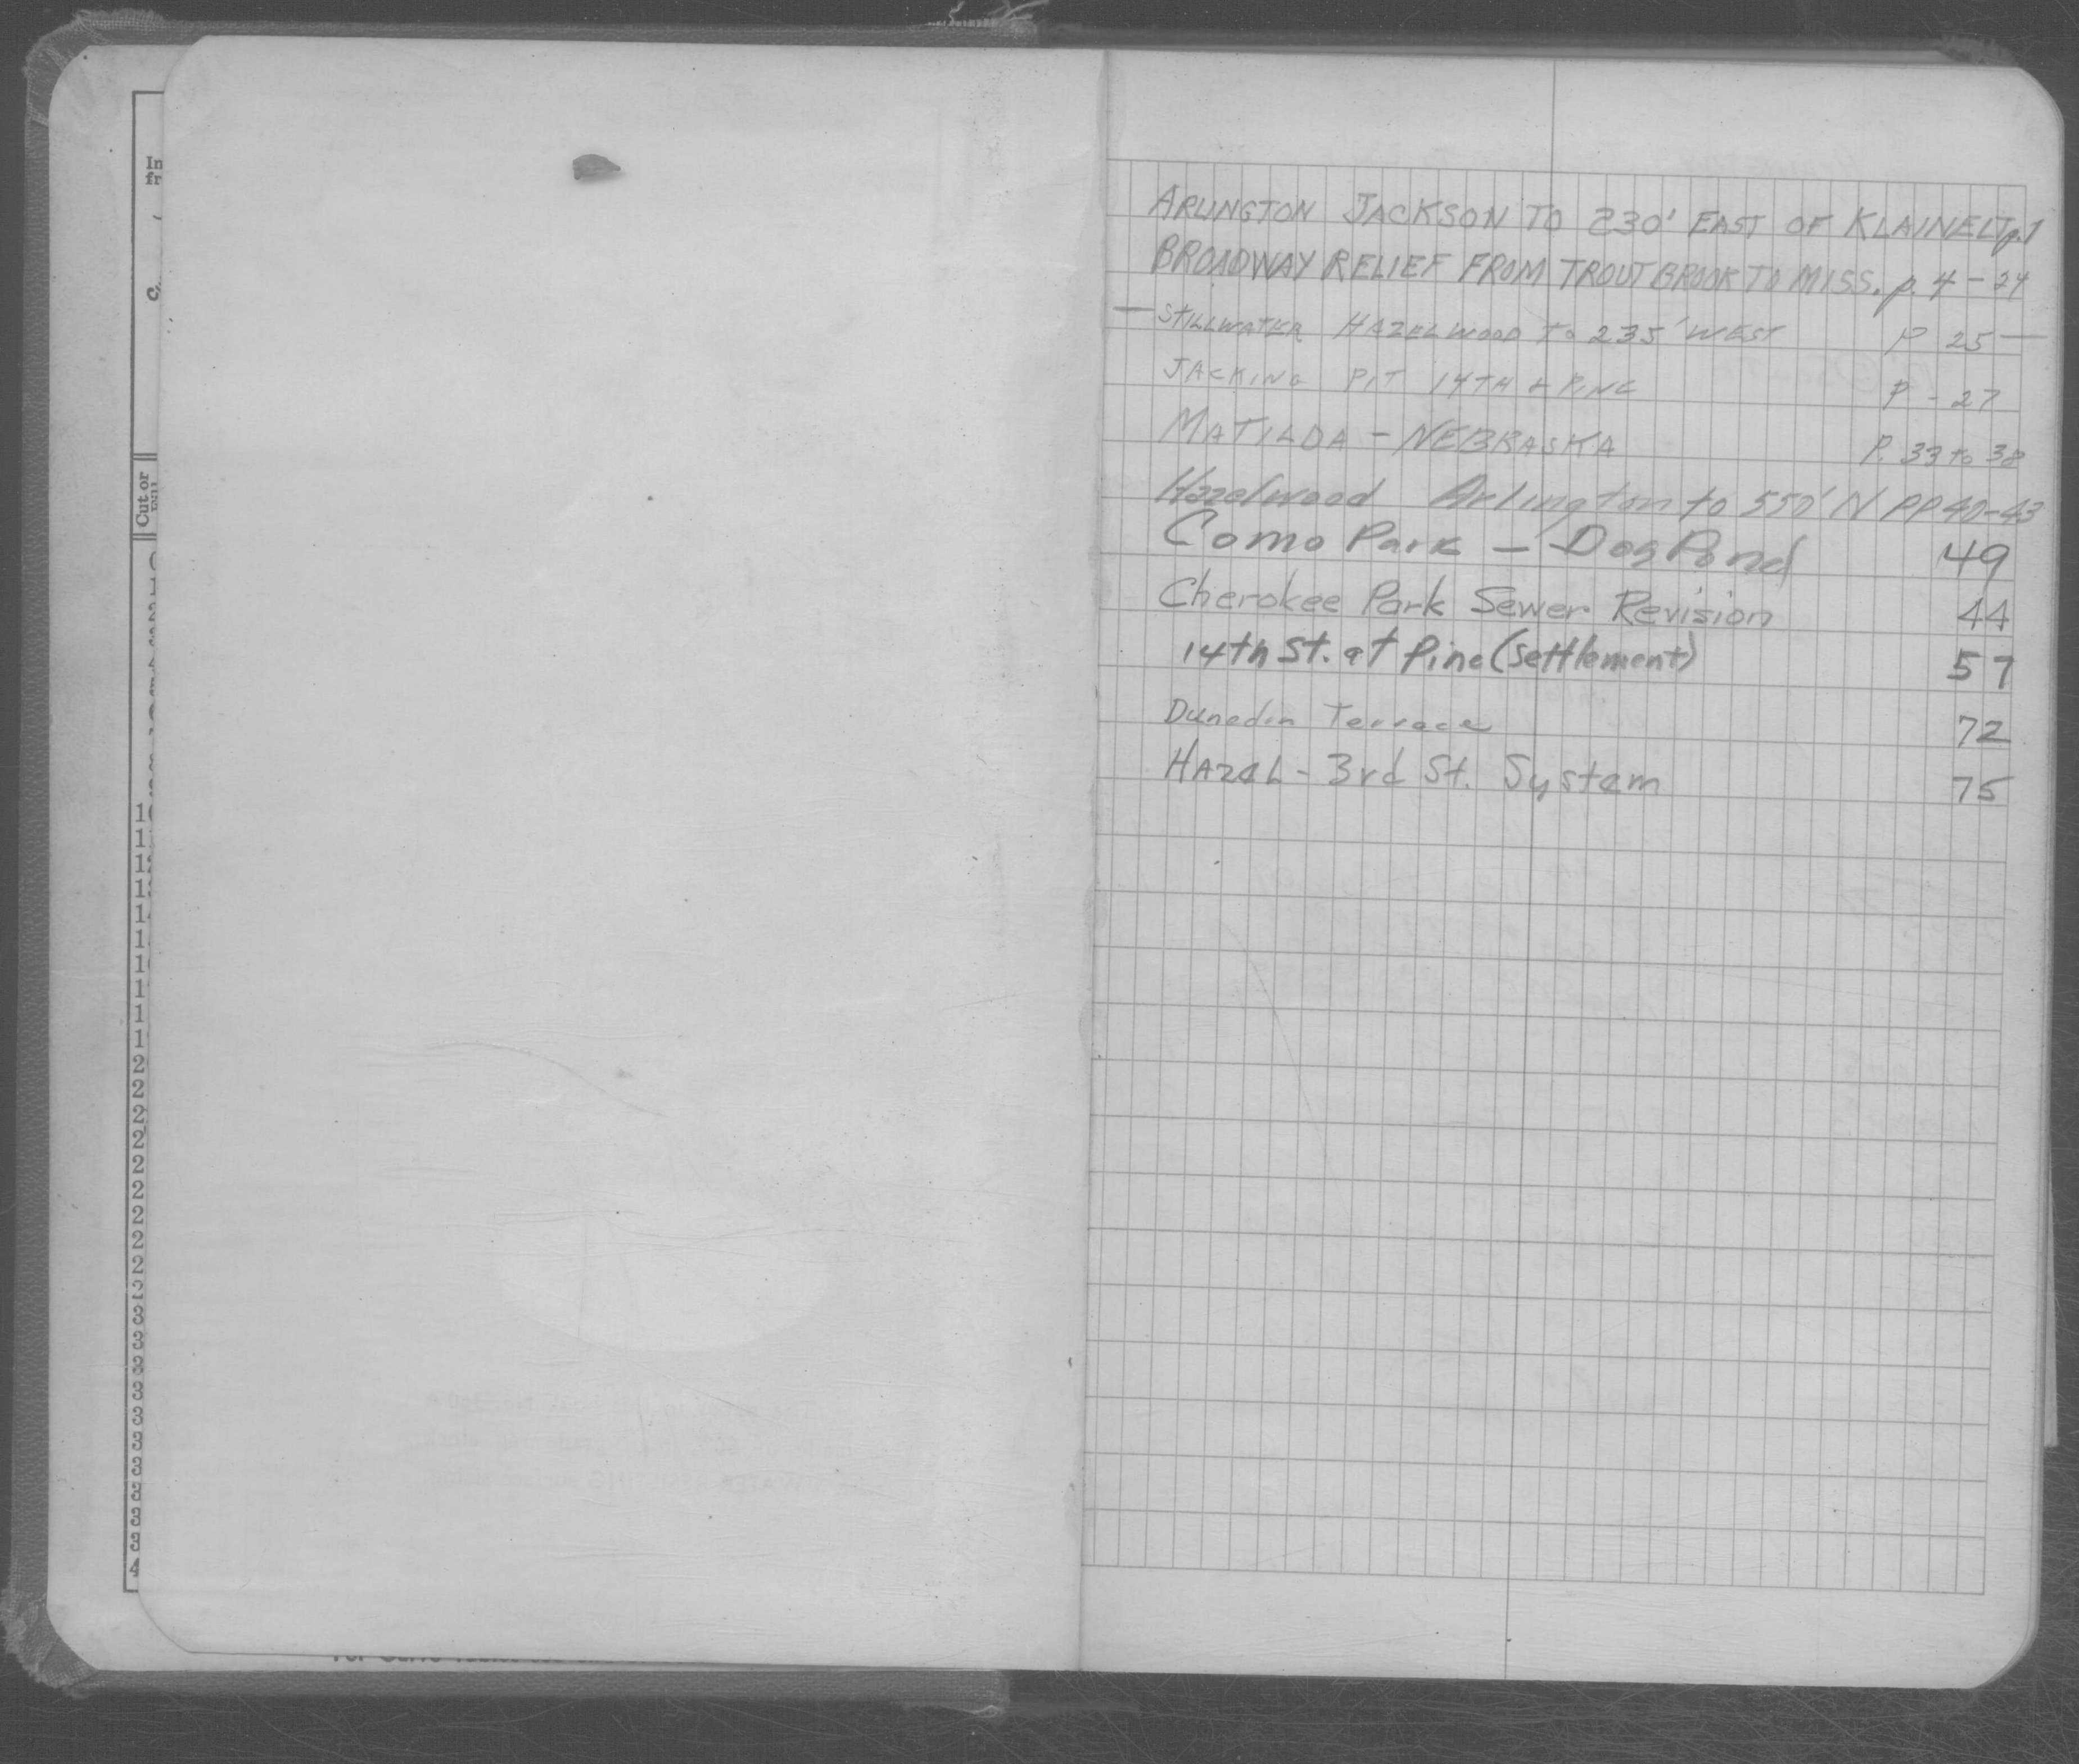 ARLINGTON JACKSON TO 230' EAST OF KLAINELT p.1
BROADWAY RELIEF FROM TROUT BROOK TO MISS. p. 4 - 24
— STILLWATER HAZELWOOD To 235' WEST P 25 —
JACKING PIT 14TH & PINE P - 27
MATILDA - NEBRASKA P. 33 to 38
Hazelwood Arlington to 550' N PP 40-43
Como Park - Dog Pond 49
Cherokee Park Sewer Revision 44
14th St. at Pine (Settlement) 57
Dunedin Terrace 72
HAZEL - 3rd St. System 75
In
fr
Cut or